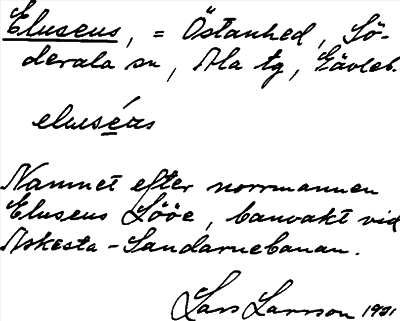 Eluseus, = Östanhed, Sö-
derala sn, Ala tg, Gävleb.
eluséus
Namnet efter norrmannen
Eluseus Lööe, banvakt vid
Askesta-Sandarnebanan.
Lars Larsson 1931